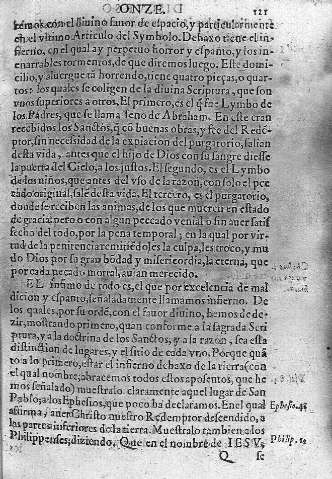 ONZE. 121
remos. con el diuino fauor de espacio, y particularmente
en el vltimo Articulo del Symbolo. Debaxo tiene el in-
fierno, en el qual ay perpetuo horror y espãto, y los in-
enarrables tormentos, de que diremos luego. Este domi-
cilio, y aluergue tã horrendo, tiene quatro pieças, o quar-
tos: los quales se coligen de la diuina Scriptura, que son
vnos superiores a otros. El primero, es el q̃ fue Lymbo de
los Padres, que se llama seno de Abraham. En este eran
recebidos los Sanctos, q̃ cõ buenas obras, y fee del Redẽ-
ptor, sin necesidad de la expiacion del purgatorio, salian
desta vida, antes que el hijo de Dios con su sangre diesse
la puerta del Cielo, a los justos. El segundo, es el Lymbo
de los niños, que antes del vso de la razon, con solo el pec
cado original, salẽ desta vida. El tercero, es el purgatorio,
donde se reciben las animas, de los que mueren en estado
de gracia: pero o con algun peccado venial o sin auer satis
fecho del todo, por la pena temporal; en la qual por vir-
tud de la penitencia remitiẽdoles la culpa, les troco, y mu
do Dios por su gran bõdad y misericordia, la eterna, que
por cada pecado mortal, auian merecido.
EL infimo de todos es, el que por excelencia de mal
dicion y espanto, señaladamente llamamos infierno. De
los quales, por su ordẽ, con el fauor diuino, hemos de de-
zir, mostrando primero, quan conforme a la sagrada Scri
ptura, y a la doctrina de los Sanctos, y a la razon, sea esta
distinction de lugares, y el sitio de cada vno. Porque quã
to a lo primero, estar el infierno debaxo de la tierra (con
el qual nombre, abraçemos todos estos aposentos, que he
mos señalado) muestralo claramente aquel lugar de San
Pablo, a los Ephesios, que poco ha declaramos. En el qual
affirma, auer Christo nuestro Redemptor descendido, a
las partes inferiores de la tierra. Muestralo tambien a los
Philippenses, diziendo, Que en el nombre de IESV,
Q se
Ephesio. 4.
Philip. 2.